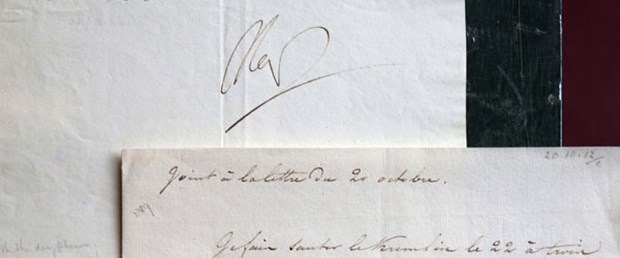 Nap
20-10-12/1
Joint à la lettre du 20 octobre.
Je fais sauter le Kremlin le 22 à trois